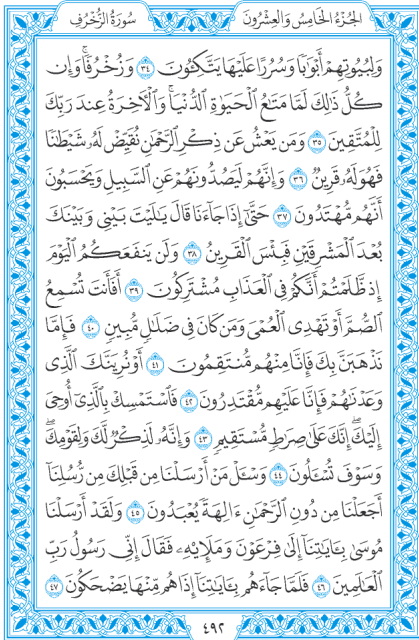 الجزء الخامس والعشرون سورة الزخرف
وَلِبُيُوتِهِمْ أَبْوَٰبًا وَسُرُرًا عَلَيْهَا يَتَّكِـُٔونَ ٣٤ وَزُخْرُفًا ۚ وَإِن
كُلُّ ذَٰلِكَ لَمَّا مَتَـٰعُ ٱلْحَيَوٰةِ ٱلدُّنْيَا ۚ وَٱلْـَٔاخِرَةُ عِندَ رَبِّكَ
لِلْمُتَّقِينَ ٣٥ وَمَن يَعْشُ عَن ذِكْرِ ٱلرَّحْمَـٰنِ نُقَيِّضْ لَهُۥ شَيْطَـٰنًا
فَهُوَ لَهُۥ قَرِينٌ ٣٦ وَإِنَّهُمْ لَيَصُدُّونَهُمْ عَنِ ٱلسَّبِيلِ وَيَحْسَبُونَ
أَنَّهُم مُّهْتَدُونَ ٣٧ حَتَّىٰٓ إِذَا جَآءَنَا قَالَ يَـٰلَيْتَ بَيْنِى وَبَيْنَكَ
بُعْدَ ٱلْمَشْرِقَيْنِ فَبِئْسَ ٱلْقَرِينُ ٣٨ وَلَن يَنفَعَكُمُ ٱلْيَوْمَ
إِذ ظَّلَمْتُمْ أَنَّكُمْ فِى ٱلْعَذَابِ مُشْتَرِكُونَ ٣٩ أَفَأَنتَ تُسْمِعُ
ٱلصُّمَّ أَوْ تَهْدِى ٱلْعُمْىَ وَمَن كَانَ فِى ضَلَـٰلٍ مُّبِينٍ ٤٠ فَإِمَّا
نَذْهَبَنَّ بِكَ فَإِنَّا مِنْهُم مُّنتَقِمُونَ ٤١ أَوْ نُرِيَنَّكَ ٱلَّذِى
وَعَدْنَـٰهُمْ فَإِنَّا عَلَيْهِم مُّقْتَدِرُونَ ٤٢ فَٱسْتَمْسِكْ بِٱلَّذِىٓ أُوحِىَ
إِلَيْكَ ۖ إِنَّكَ عَلَىٰ صِرَٰطٍ مُّسْتَقِيمٍ ٤٣ وَإِنَّهُۥ لَذِكْرٌ لَّكَ وَلِقَوْمِكَ ۖ
وَسَوْفَ تُسْـَٔلُونَ ٤٤ وَسْـَٔلْ مَنْ أَرْسَلْنَا مِن قَبْلِكَ مِن رُّسُلِنَآ
أَجَعَلْنَا مِن دُونِ ٱلرَّحْمَـٰنِ ءَالِهَةً يُعْبَدُونَ ٤٥ وَلَقَدْ أَرْسَلْنَا
مُوسَىٰ بِـَٔايَـٰتِنَآ إِلَىٰ فِرْعَوْنَ وَمَلَإِي۟هِۦ فَقَالَ إِنِّى رَسُولُ رَبِّ
ٱلْعَـٰلَمِينَ ٤٦ فَلَمَّا جَآءَهُم بِـَٔايَـٰتِنَآ إِذَا هُم مِّنْهَا يَضْحَكُونَ ٤٧
٤٩٢